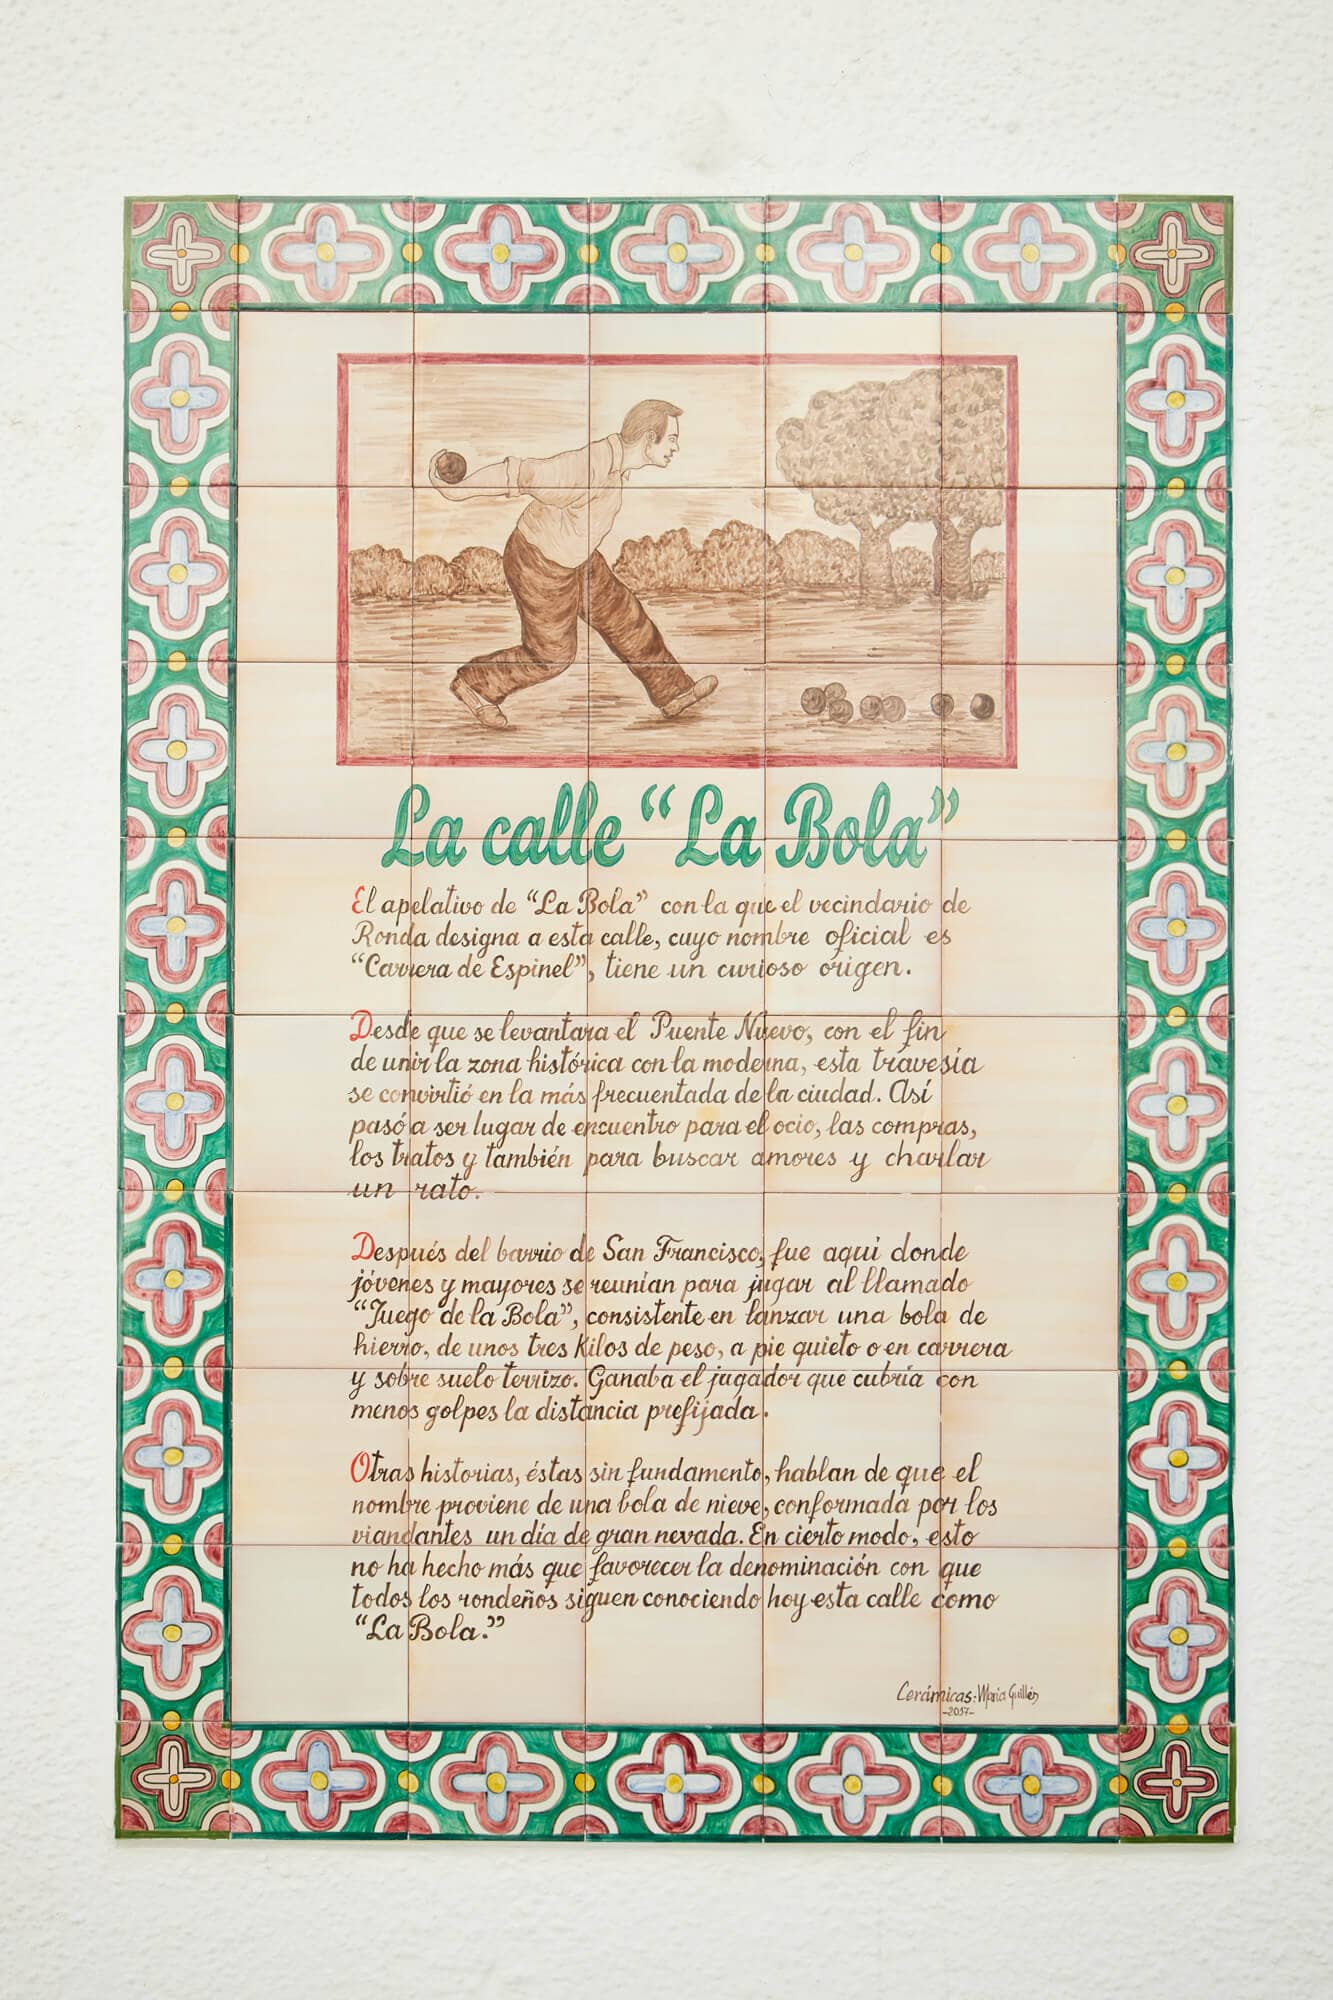 La calle “La Bola”
El apelativo de “La Bola” con la que el vecindario de
Ronda designa a esta calle, cuyo nombre oficial es
“Carrera de Espinel”, tiene un curioso origen.
Desde que se levantara el Puente Nuevo, con el fin
de unir la zona histórica con la moderna, esta travesía
se convirtió en la más frecuentada de la ciudad. Así
pasó a ser lugar de encuentro para el ocio, las compras,
los tratos y también para buscar amores y charlar
un rato.
Después del barrio de San Francisco, fue aquí donde
jóvenes y mayores se reunían para jugar al llamado
“Juego de la Bola”, consistente en lanzar una bola de
hierro, de unos tres kilos de peso, a pie quieto o en carrera
y sobre suelo terrizo. Ganaba el jugador que cubría con
menos golpes la distancia prefijada.
Otras historias, éstas sin fundamento, hablan de que el
nombre proviene de una bola de nieve, conformada por los
viandantes un día de gran nevada. En cierto modo, esto
no ha hecho más que favorecer la denominación con que
todos los rondeños siguen conociendo hoy esta calle como
“La Bola.”
Cerámicas: Maria Guillén
-2017-